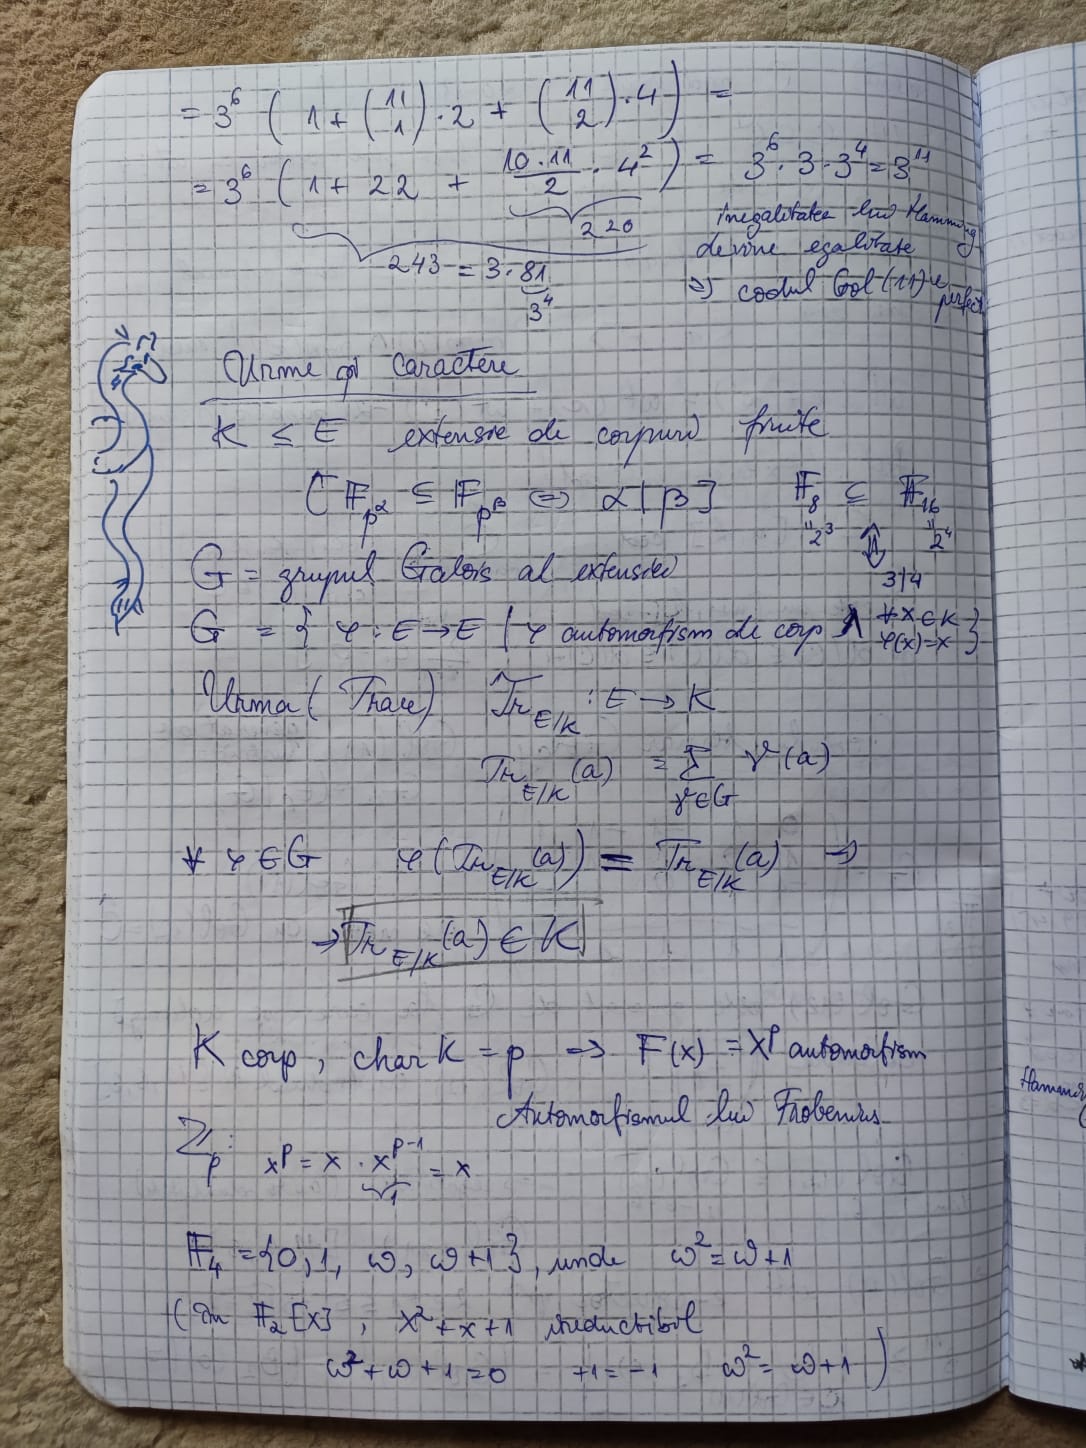 = 3^6 ( 1 + (11 1) · 2 + (11 2) · 4 ) =
= 3^6 ( 1 + 22 + 10·11/2 · 4^2 ) = 3^6 · 3 · 3^4 = 3^11
220
243 = 3·81
3^4
inegalitatea lui Hamming
devine egalitate
⇒ codul Gol (11) e perfect
Urme și caractere
K ≤ E extensie de corpuri finite
[ 𝔽_{p^α} ⊆ 𝔽_{p^β} ⇔ α | β ] 𝔽_8 ⊆ 𝔽_16
"2^3 ⇕ "2^4
3|4
G = grupul Galois al extensiei
G = { φ : E → E | φ automorfism de corp ∧ ∀ x ∈ K φ(x) = x }
Urma (Trace) Tr_{E/K} : E → K
Tr_{E/K} (a) = Σ_{γ∈G} γ(a)
∀ φ ∈ G φ(Tr_{E/K}(a)) = Tr_{E/K}(a) ⇒
⇒ Tr_{E/K}(a) ∈ K
K corp, char K = p ⇒ F(x) = x^p automorfism
Automorfismul lui Frobenius
ℤ_p: x^p = x · x^{p-1} = x
1
𝔽_4 = {0, 1, ω, ω+1}, unde ω^2 = ω+1
(În 𝔽_2[x], x^2+x+1 ireductibil
ω^2+ω+1 = 0 +1 = -1 ω^2 = ω+1 )